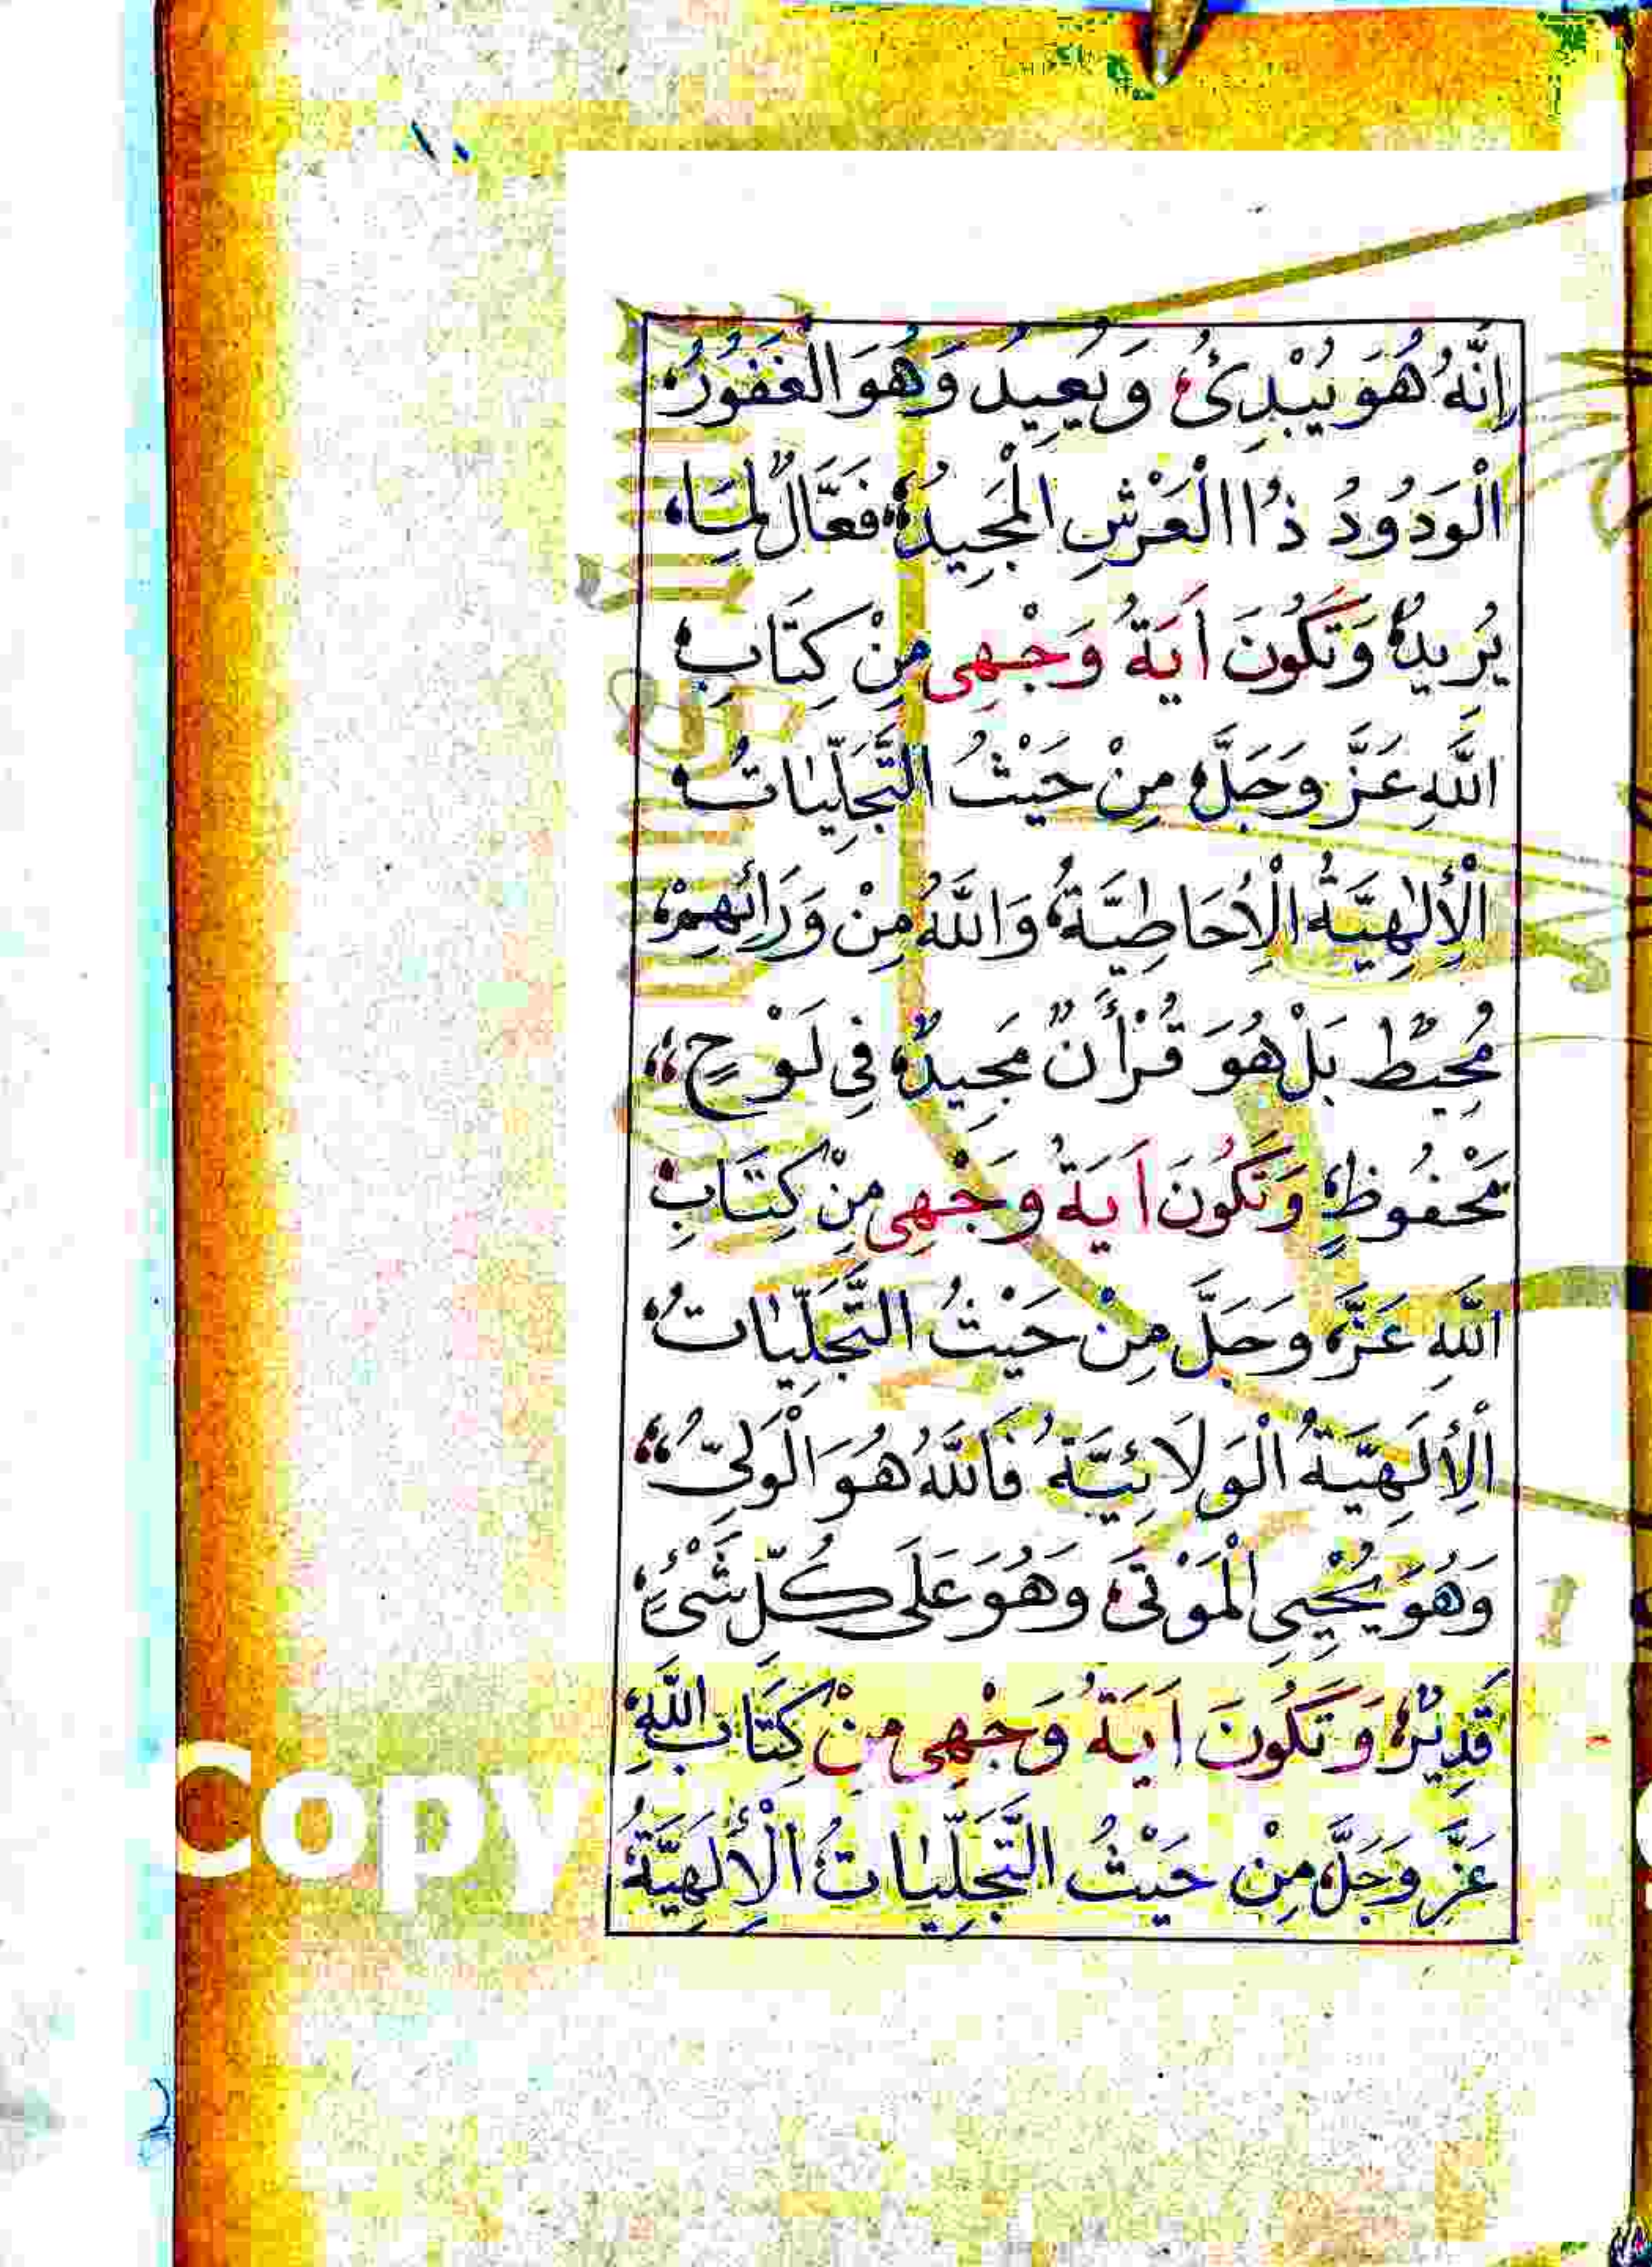 ١٠
إِنَّهُ هُوَ يُبْدِئُ وَيُعِيدُ وَهُوَ الْغَفُورُ
الْوَدُودُ ذُا الْعَرْشِ الْمَجِيدُ فَعَّالٌ لِمَا
يُرِيدُ وَتَكُونَ اَيَةُ وَجْهِى مِنْ كِتَابِ
اللَّهِ عَزَّ وَجَلَّ مِنْ حَيْثُ التَّجَلِّيَاتُ
الْإِلٰهِيَّةُ الْإِحَاطِيَّةُ وَاللَّهُ مِنْ وَرَائِهِمْ
مُحِيطٌ بَلْ هُوَ قُرْأَنٌ مَجِيدٌ فِى لَوْحٍ
مَحْفُوظٍ وَتَكُونَ اَيَةُ وَجْهِى مِنْ كِتَابِ
اللَّهِ عَزَّ وَجَلَّ مِنْ حَيْثُ التَّجَلِّيَاتُ
الْإِلَهِيَّةُ الْوَلَائِيَّةُ فَاللَّهُ هُوَ الْوَلِىُّ
وَهُوَ يُحْيِى الْمَوْتَى وَهُوَ عَلَى كُلِّ شَىْءٍ
قَدِيرٌ وَتَكُونَ اَيَةُ وَجْهِى مِنْ كِتَابِ اللَّهِ
عَزَّ وَجَلَّ مِنْ حَيْثُ التَّجَلِّيَاتُ الْإِلَهِيَّةُ
Copy